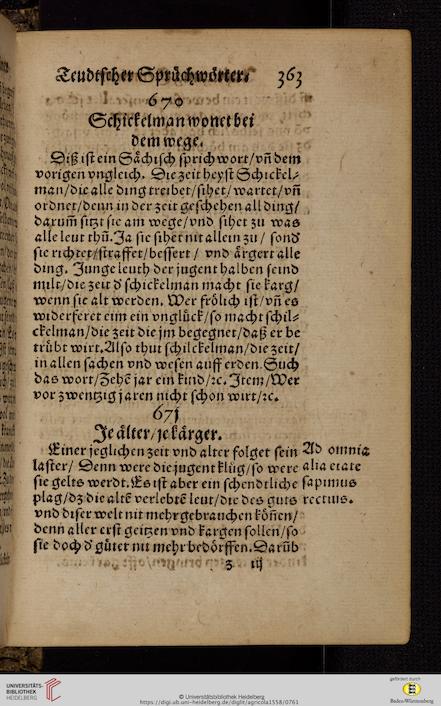 Teudtscher Sprüchwörter. 363
670
Schickelman wonet bei
dem wege.
Diß ist ein Sächisch sprichwort/vñ dem
vorigen vngleich. Die zeit heyst Schickel-
man/die alle ding treibet/sihet/wartet/vñ
ordnet/denn in der zeit geschehen all ding/
darum̃ sitzt sie am wege/vnd sihet zu was
alle leut thũ. Ja sie sihet nit allein zu/ sond̃
sie richtet/straffet/bessert/ vnd ärgert alle
ding. Junge leuth der jugent halben seind
milt/die zeit d̃ schickelman macht sie karg/
wenn sie alt werden. Wer frölich ist/vñ es
widerferet eim ein vnglück/so macht schil-
ckelman/die zeit die jm begegnet/daß er be
trübt wirt. Also thut schilckelman/die zeit/
in allen sachen vnd wesen auff erden. Such
das wort/Zehẽ jar ein kind/ꝛc. Item/Wer
vor zwentzig jaren nicht schon wirt/ꝛc.
671
Je älter/je kärger.
Einer jeglichen zeit vnd alter folget sein
Ad omnia
laster/ Denn were die jugent klůg/so were
alia etate
sie gelts werdt. Es ist aber ein schendtliche
sapimus
plag/dz die altẽ verlebtẽ leut/die des guts
rectius.
vnd diser welt nit mehr gebrauchen kön̄en/
denn aller erst geitzen vnd kargen sollen/so
sie doch d̃ güter nit mehr bedörffen. Darũb
z iij
UNIVERSITÄTS-
BIBLIOTHEK
HEIDELBERG
© Universitätsbibliothek Heidelberg
https://digi.ub.uni-heidelberg.de/diglit/agricola1558/0761
gefördert durch
Baden-Württemberg